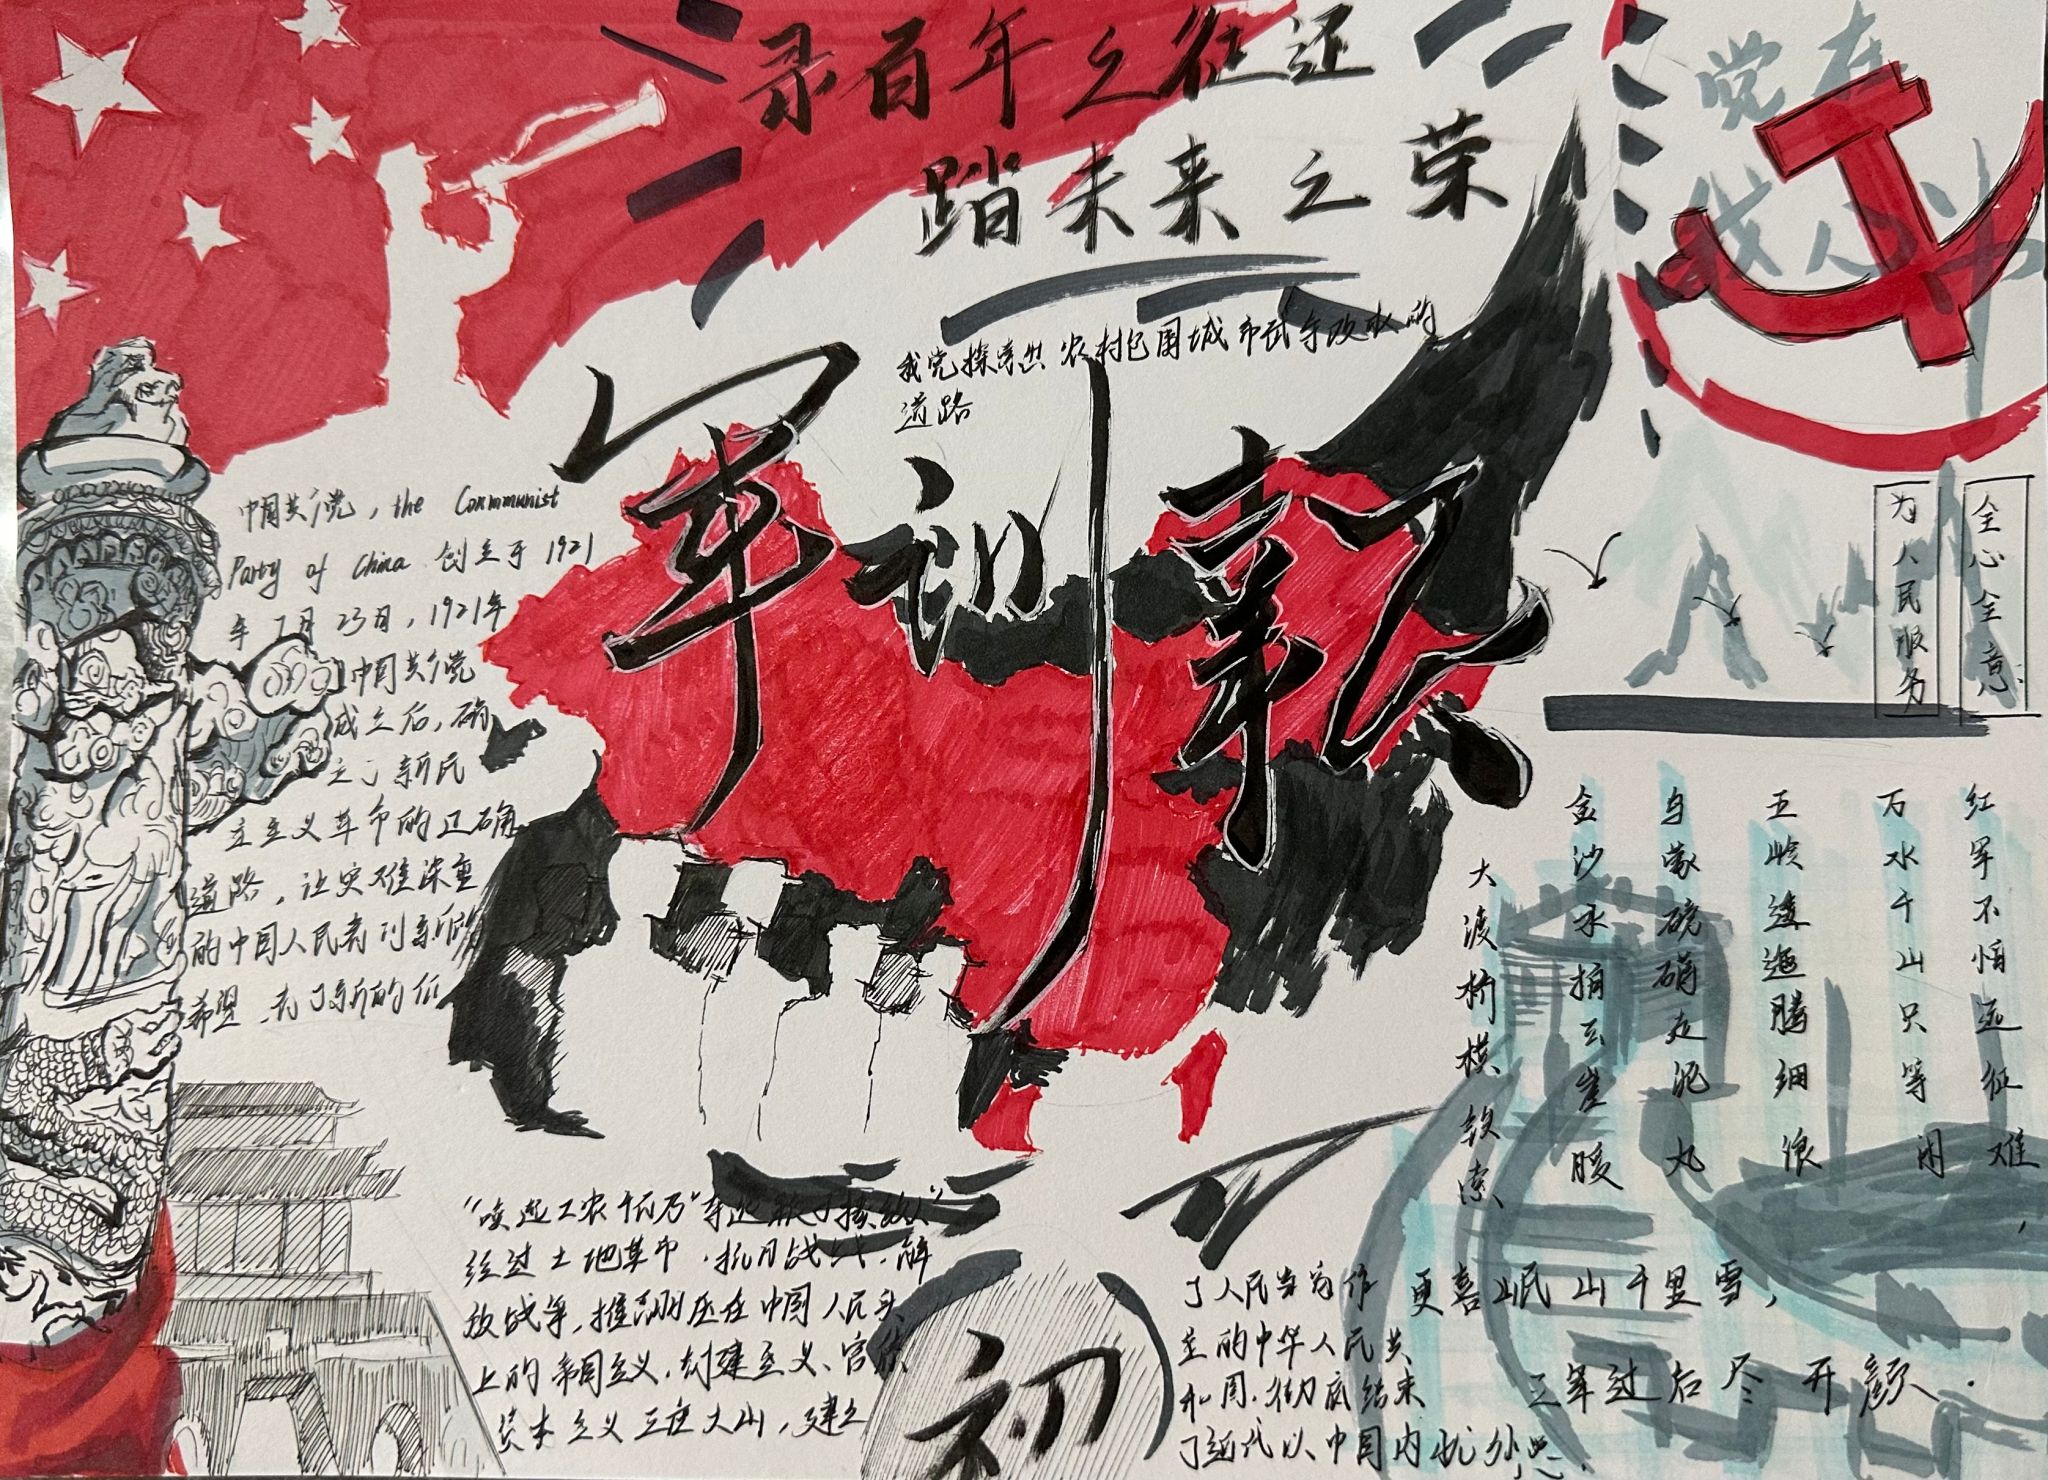 录百年之征还
踏未来之荣
党在
我心中
我党探索出农村包围城市武夺政权的
道路
军训
中国共产党，the Communist
Party of China 创立于1921
年7月23日，1921年
中国共产党
成立后，确
立了新民
主主义革命的正确
道路，让灾难深重
的中国人民看到新的
希望、有了新的
全心全意
为人民服务
红军不怕远征难，
万水千山只等闲
五岭逶迤腾细浪
乌蒙磅礴走泥丸
金沙水拍云崖暖
大渡桥横铁索
更喜岷山千里雪，
三军过后尽开颜.
"唤起工农千百万"
经过土地革命、抗日战线、解
放战争，推翻压在中国人民头
上的帝国主义、封建主义、官僚
资本主义三座大山，建立
了人民当家作
主的中华人民共
和国.彻底结束
了近代以中国内忧外患.
初